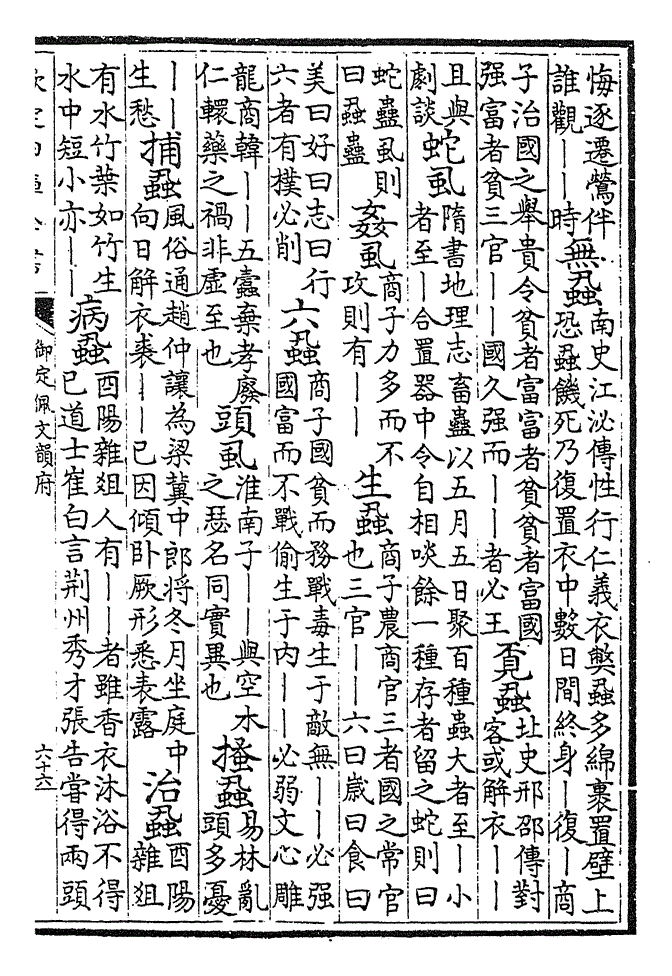 悔逐遷鶯伴誰觀——時 無蝨 南史江泌傳性行仁義衣弊蝨多綿裹置壁上恐蝨饑死乃復置衣中數日間終身—復—商
子治國之舉貴令貧者富富者貧貧者富國强富者貧三官——國久强而——者必王 覓蝨 北史邢邵傳對客或解衣——
且與劇談 蛇虱 隋書地理志畜蠱以五月五日聚百種蟲大者至—小者至—合置器中令自相啖餘一種存者留之蛇則曰
蛇蠱虱則曰蝨蠱 姦虱 商子力多而不攻則有—— 生蝨 商子農商官三者國之常官也三官——六曰歲曰食曰
美曰好曰志曰行六者有樸必削 六蝨 商子國貧而務戰毒生于敵無——必强國富而不戰偷生于内——必弱文心雕
龍商韓——五蠹棄孝廢仁轘藥之禍非虛至也 頭虱 淮南子——與空木之瑟名同實異也 搔蝨 易林亂頭多憂
——生愁 捕蝨 風俗通趙仲讓為梁冀中郎将冬月坐庭中向日解衣裘——已因傾卧厥形悉表露 治蝨 酉陽雜俎
有水竹葉如竹生水中短小亦—— 病蝨 酉陽雜俎人有——者雖香衣沐浴不得已道士崔白言荆州秀才張告嘗得兩頭
御定佩文韻府
六十六